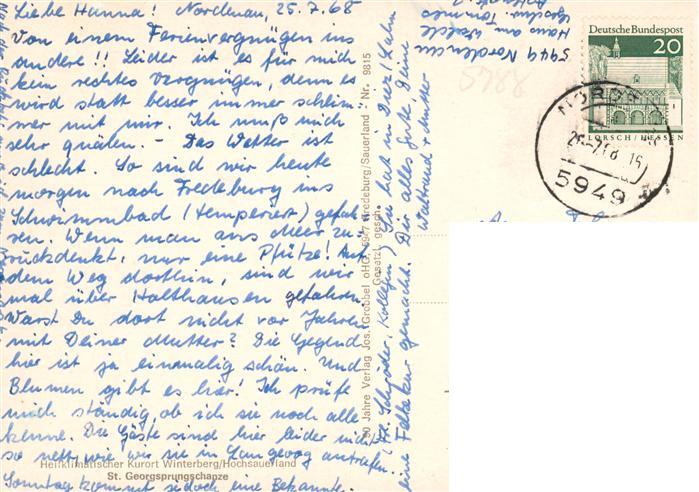 Liebe Hanna! Nordenau, 25.7.68
Von einem Ferienvergnügen ins
andere!! Leider ist es für mich
kein rechtes Vergnügen, denn es
wird statt besser immer schlim-
mer mit mir. Ich muß mich
sehr quälen. - Das Wetter ist
schlecht. So sind wir heute
morgen nach Fredeburg ins
Schwimmbad (temperiert) gefah-
ren. Wenn man ans Meer zu-
rückdenkt, nur eine Pfütze! Auf
dem Weg dorthin, sind wir
mal über Holthausen gefahren.
Warst Du dort nicht vor Jahren
mit Deiner Mutter? Die Gegend
hier ist ja einmalig schön. Und
Blumen gibt es hier! Ich prüfe
mich ständig, ob ich sie noch alle
kenne. Die Gäste sind hier leider nicht
so nett, wie wir sie in Langeoog antrafen.
Sonntag kommt jedoch eine Bekannte.
Heilklimatischer Kurort Winterberg/Hochsauerland
St. Georgsprungschanze
Jahre Verlag Jos. Grobbel oHG, 5947 Fredeburg/Sauerland Nr. 9815
Gesetzl. gesch.
Schröder, Kollegin, hat in Diez/Lahn
eine Faltenkur gemacht. Dir alles Gute, Deine
Waltraud + Mutter
5949 Nordenau
Haus am Walde
5788
Deutsche Bundespost
20
LORSCH/HESSEN
5949